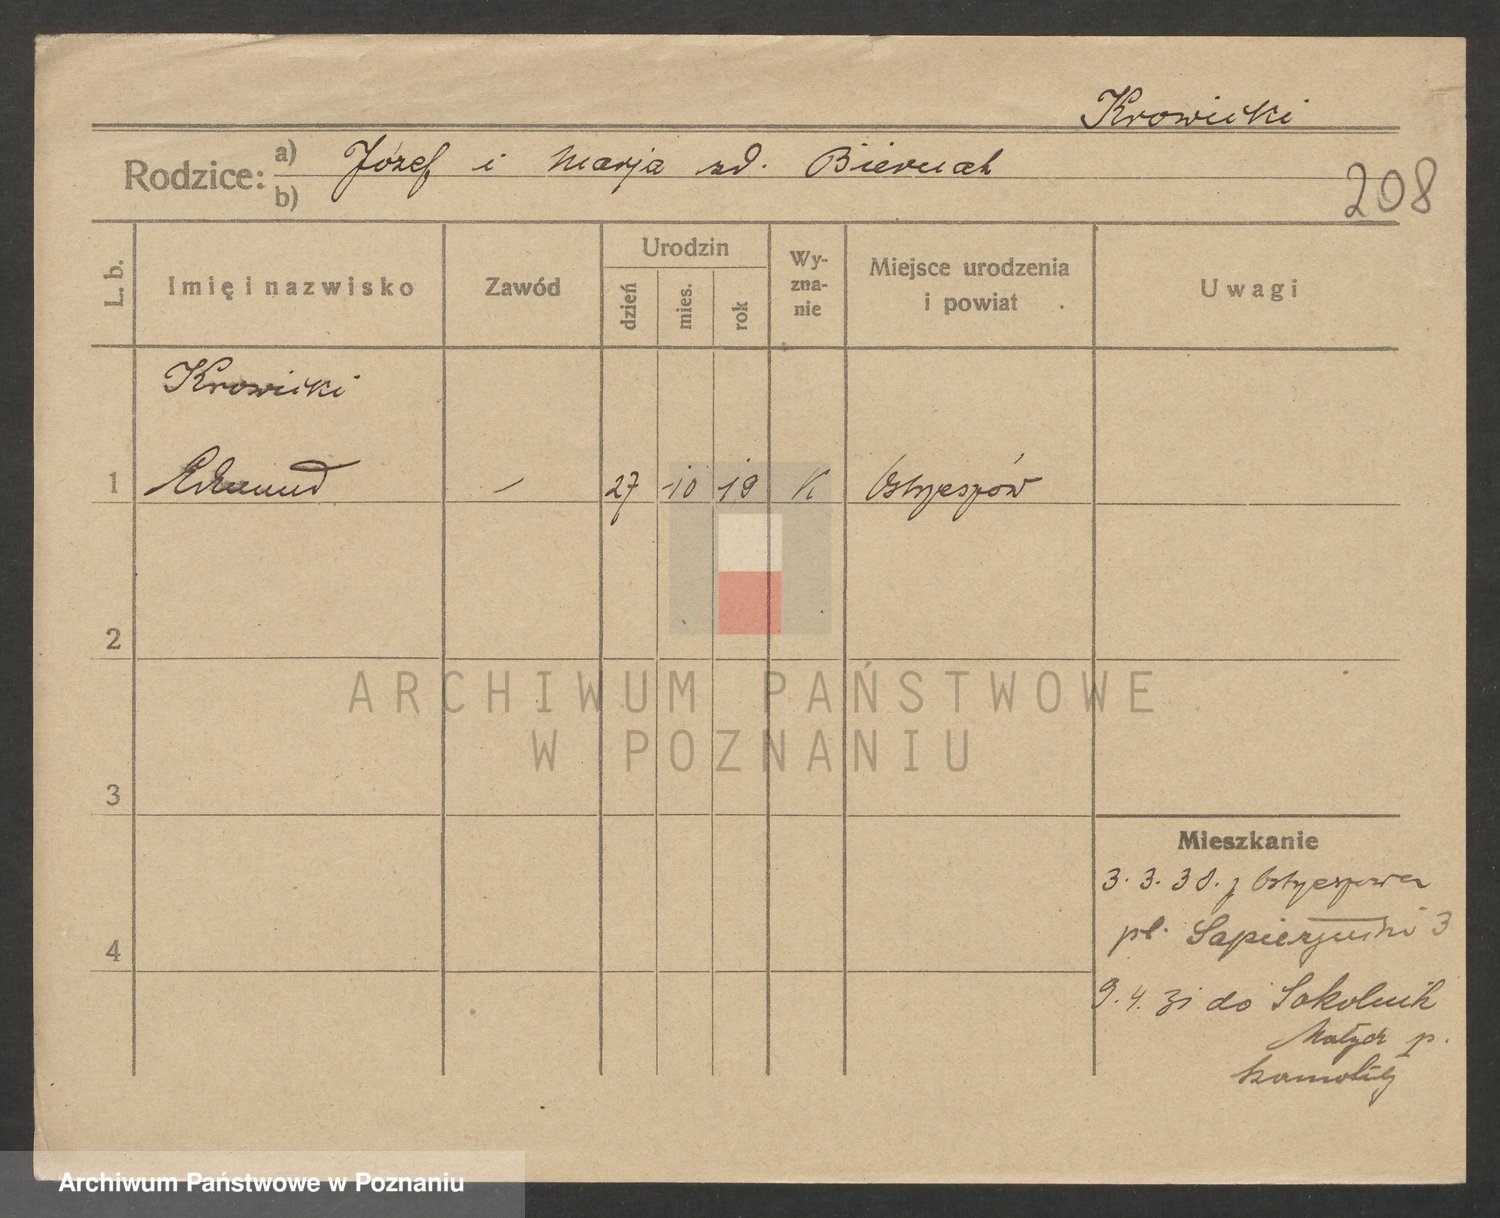 Krowicki
Rodzice: a) Józef i Marja zd. Biernat
b)
208
L. b.
Imię i nazwisko
Zawód
Urodzin
dzień
mies.
rok
Wy-
zna-
nie
Miejsce urodzenia
i powiat
Uwagi
Krowicki
1 Edmund – 27 10 19 K Ostrzeszów
2
ARCHIWUM PAŃSTWOWE
W POZNANIU
3
Mieszkanie
3. 3. 38. z Ostrzeszowa
pl. Sapieżyński 3
4
9. 4. 31 do Sokolnik
Małych p.
Szamotuły
Archiwum Państwowe w Poznaniu